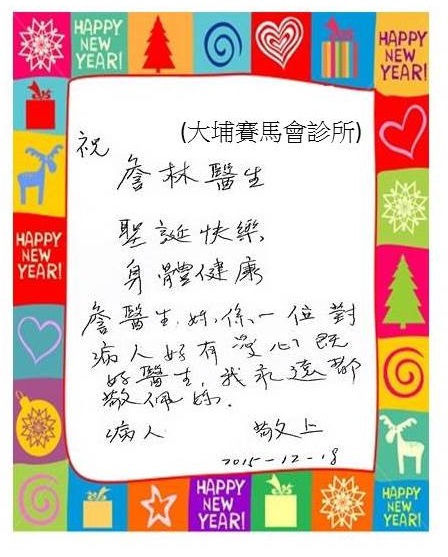 HAPPY NEW YEAR!
HAPPY NEW YEAR!
(大埔賽馬會診所)
祝
詹林醫生
聖誕快樂
身體健康
HAPPY NEW YEAR!
詹醫生,妳係一位對
病人好有愛心既
好醫生,我永遠都
敬佩妳.
病人 敬上
2015-12-18
HAPPY NEW YEAR!
HAPPY NEW YEAR!